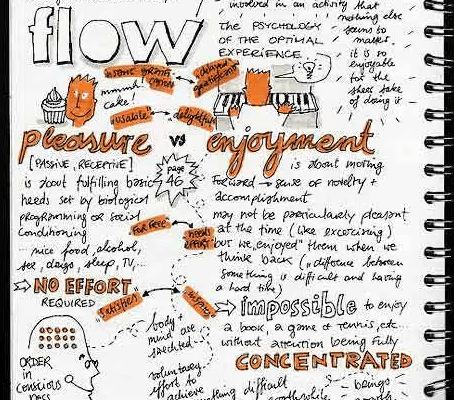 involved in an activity that
nothing else
seems to
matter.
it is so
enjoyable
for the
sheer sake
of doing it
flow
THE PSYCHOLOGY
OF THE OPTIMAL
EXPERIENCE
instant gratification
delayed
gratification
mmmh!
cake!
"usable"
delightful
pleasure vs enjoyment
[PASSIVE, RECEPTIVE]
is about fulfilling basic
needs set by biological
programming or social
conditioning
... nice food, alcohol,
sex, drugs, sleep, TV,...
⇒ NO EFFORT
REQUIRED
page
46
FOR FREE
needs
EFFORT
satisfies
is about moving
forward → sense of novelty +
accomplishment
may not be particularly pleasant
at the time (like excercising)
but we „enjoyed" them when we
think back („difference between
something is difficult and having
a hard time)
⇒ impossible to enjoy
a book, a game of tennis, etc...
without attention being fully
CONCENTRATED
ORDER
in
conscious
ness
body +
mind are
stretched
voluntary
effort to
achieve
something difficult
worthwhile
beings